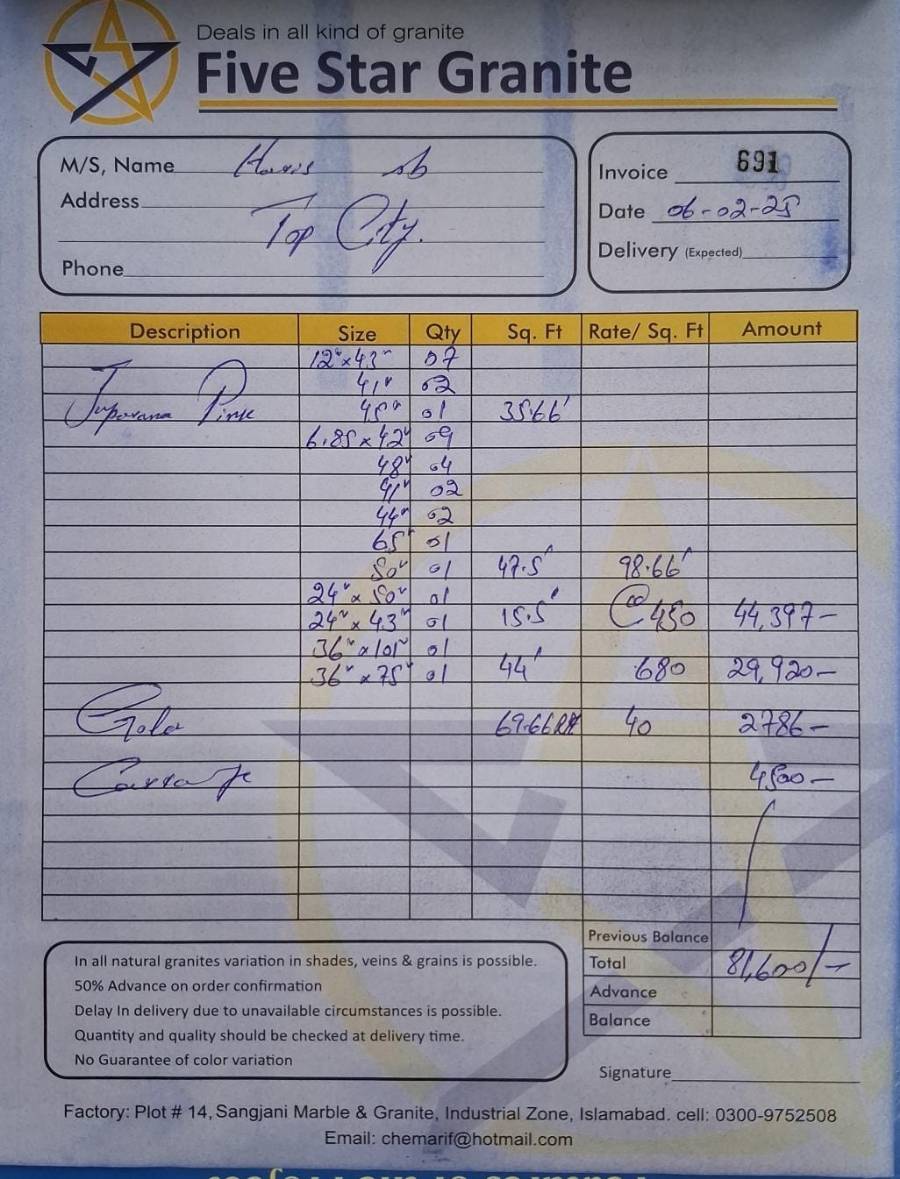 Deals in all kind of granite
Five Star Granite
M/S, Name Haris sb
Address
Top City.
Phone
Invoice 691
Date 06-02-25
Delivery (Expected)
Description Size Qty Sq. Ft Rate/ Sq. Ft Amount
12" x 43" 07
41" 02
Juporana Pink 45" 01 35.66'
6.85 x 42" 09
48" 04
41" 02
44" 02
65" 01
50" 01 47.5' 98.66'
24" x 50" 01
24" x 43" 01 15.5' @ 450 44,397-
36" x 101" 01
36" x 75" 01 44' 680 29,920-
Gola 69.66 Rft 40 2786-
Carrage 4500-
Previous Balance
Total 81,600/-
Advance
Balance
In all natural granites variation in shades, veins & grains is possible.
50% Advance on order confirmation
Delay In delivery due to unavailable circumstances is possible.
Quantity and quality should be checked at delivery time.
No Guarantee of color variation
Signature
Factory: Plot # 14, Sangjani Marble & Granite, Industrial Zone, Islamabad. cell: 0300-9752508
Email: chemarif@hotmail.com